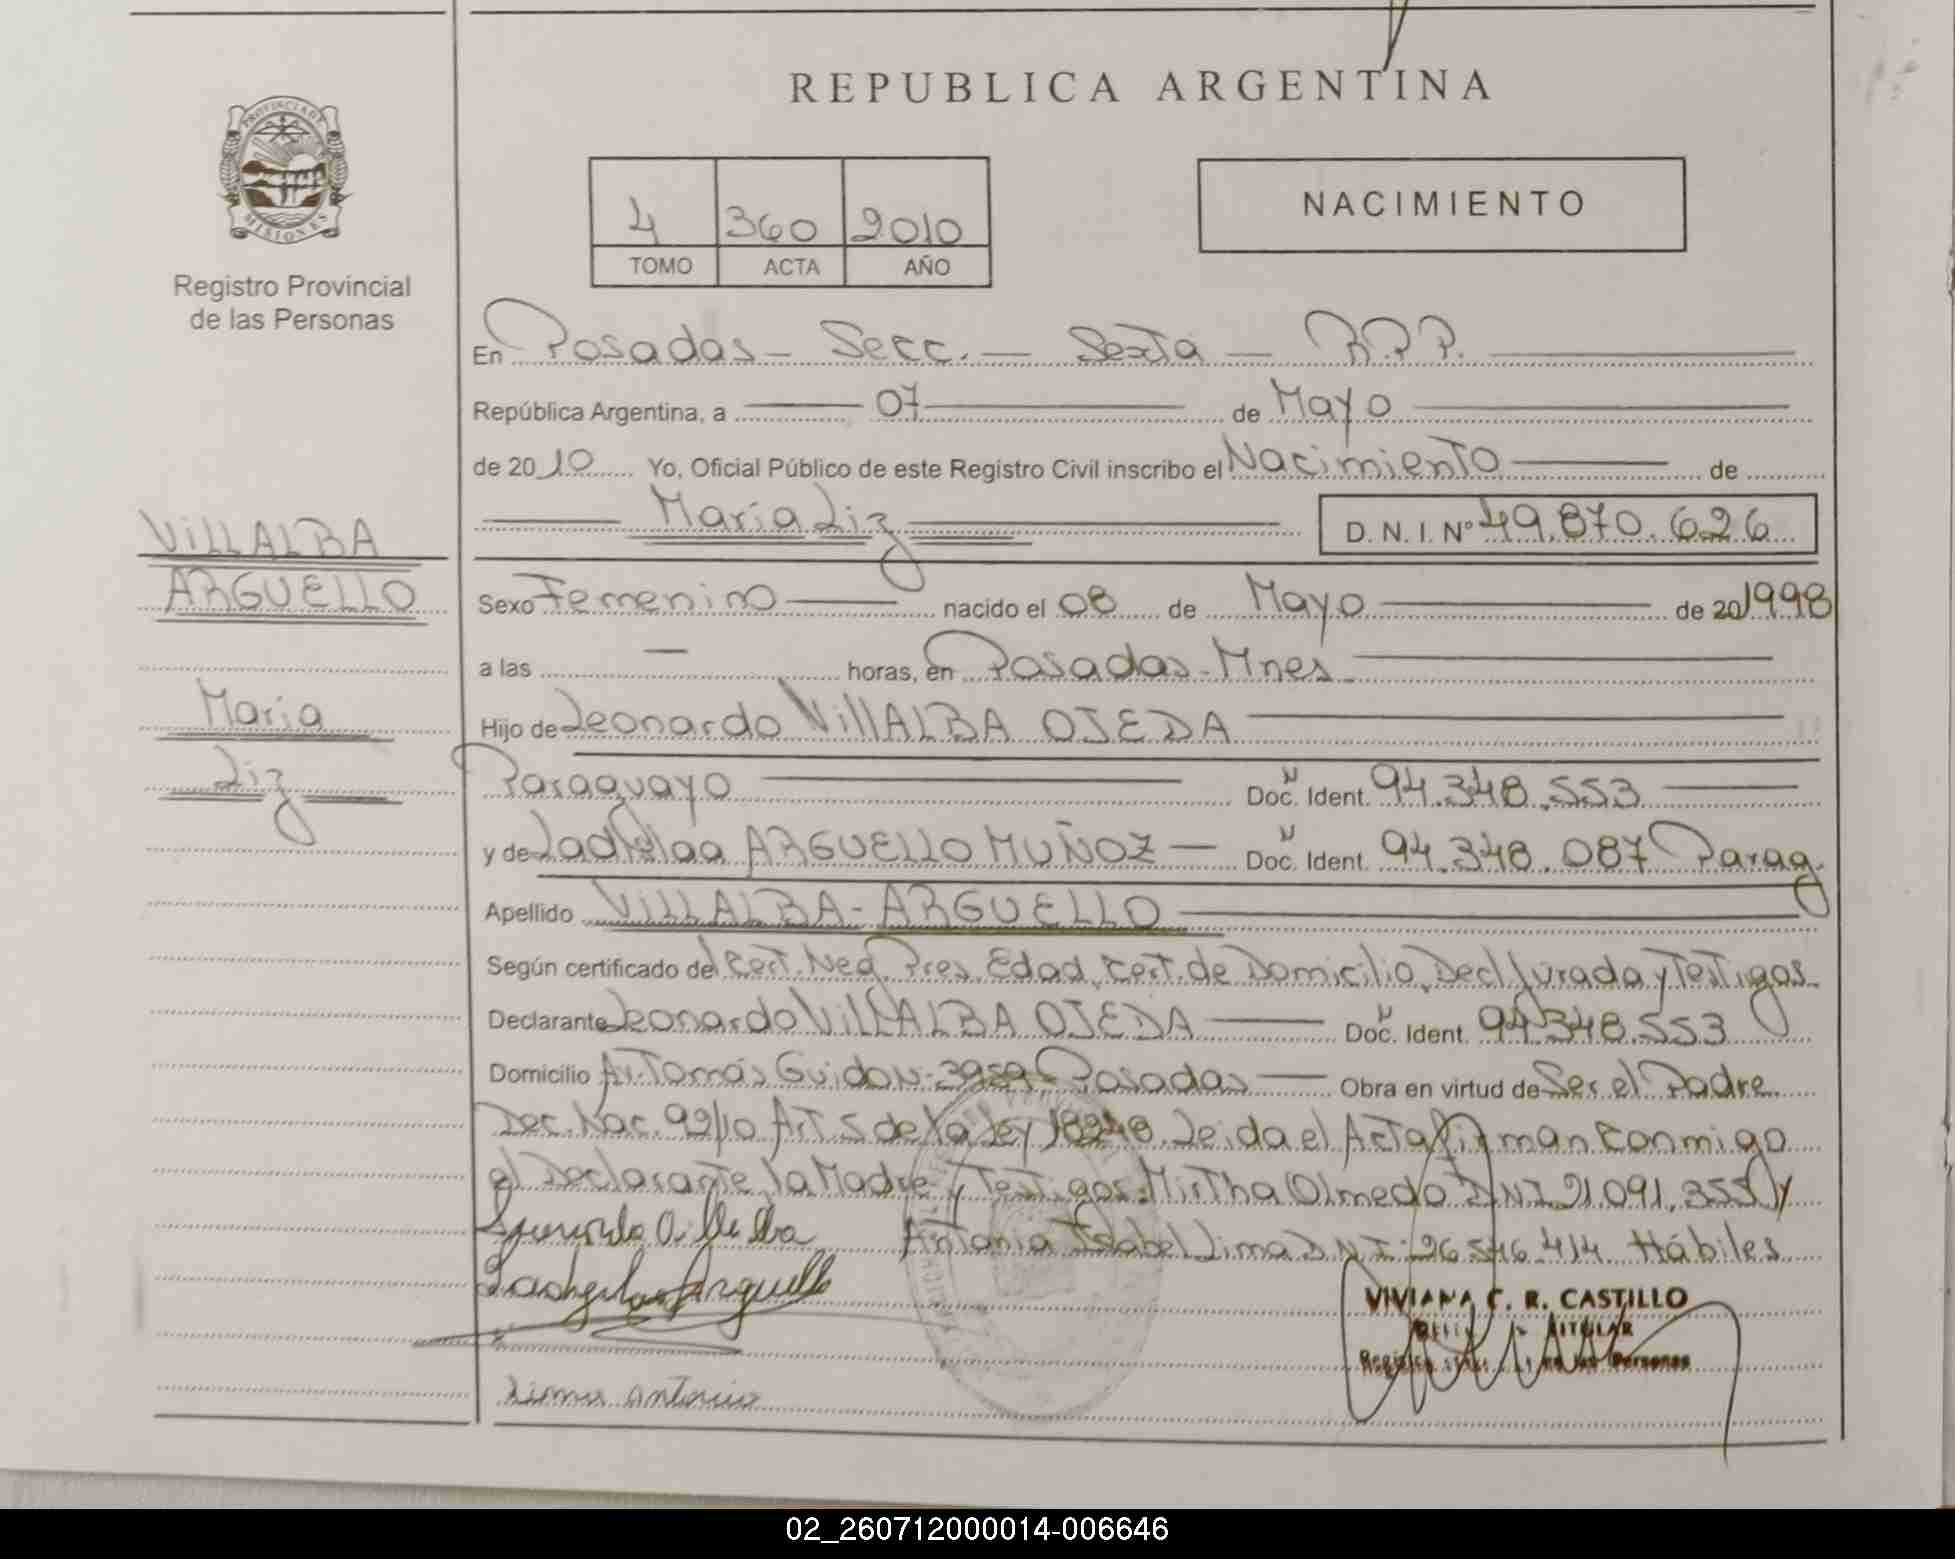 REPUBLICA ARGENTINA
PROVINCIA DE
MISIONES
Registro Provincial
de las Personas
4 360 2010
TOMO ACTA AÑO
NACIMIENTO
En Posadas - Secc. - Sexta - R.P.P.
República Argentina, a 07 de Mayo
de 2010 Yo, Oficial Público de este Registro Civil inscribo el Nacimiento de
María Liz D. N. I. Nº 49.870.626
VILLALBA
ARGUELLO
María
Liz
Sexo Femenino nacido el 08 de Mayo de 20 1998
a las — horas, en Posadas - Mnes
Hijo de Leonardo VillALBA OJEDA
Paraguayo Doc. Ident. 94.348.553
y de ARGUELLO MUÑOZ - Doc. Ident. 94.348.087 Parag.
Apellido VILLALBA - ARGUELLO
Según certificado de Cert. Neg. Pres. Edad, Cert. de Domicilio, Decl Jurada y Testigos
Declarante Leonardo VillALBA OJEDA Doc. Ident. 94.348.553
Domicilio Av. Tomás Guido N: 3959 - Posadas Obra en virtud de Ser el Padre
Dec. Nac. 92/10 Art 5 de la Ley 18248. Leida el Acta firman conmigo
el Declarante, la Madre y Testigos: Mirtha Olmedo DNI 21.091.355 y
Antonia Isabel Lima DNI: 26.546.414 Hábiles
Arguello
VIVIANA C. R. CASTILLO
TITULAR
de las Personas
Lima Antonia
02_260712000014-006646